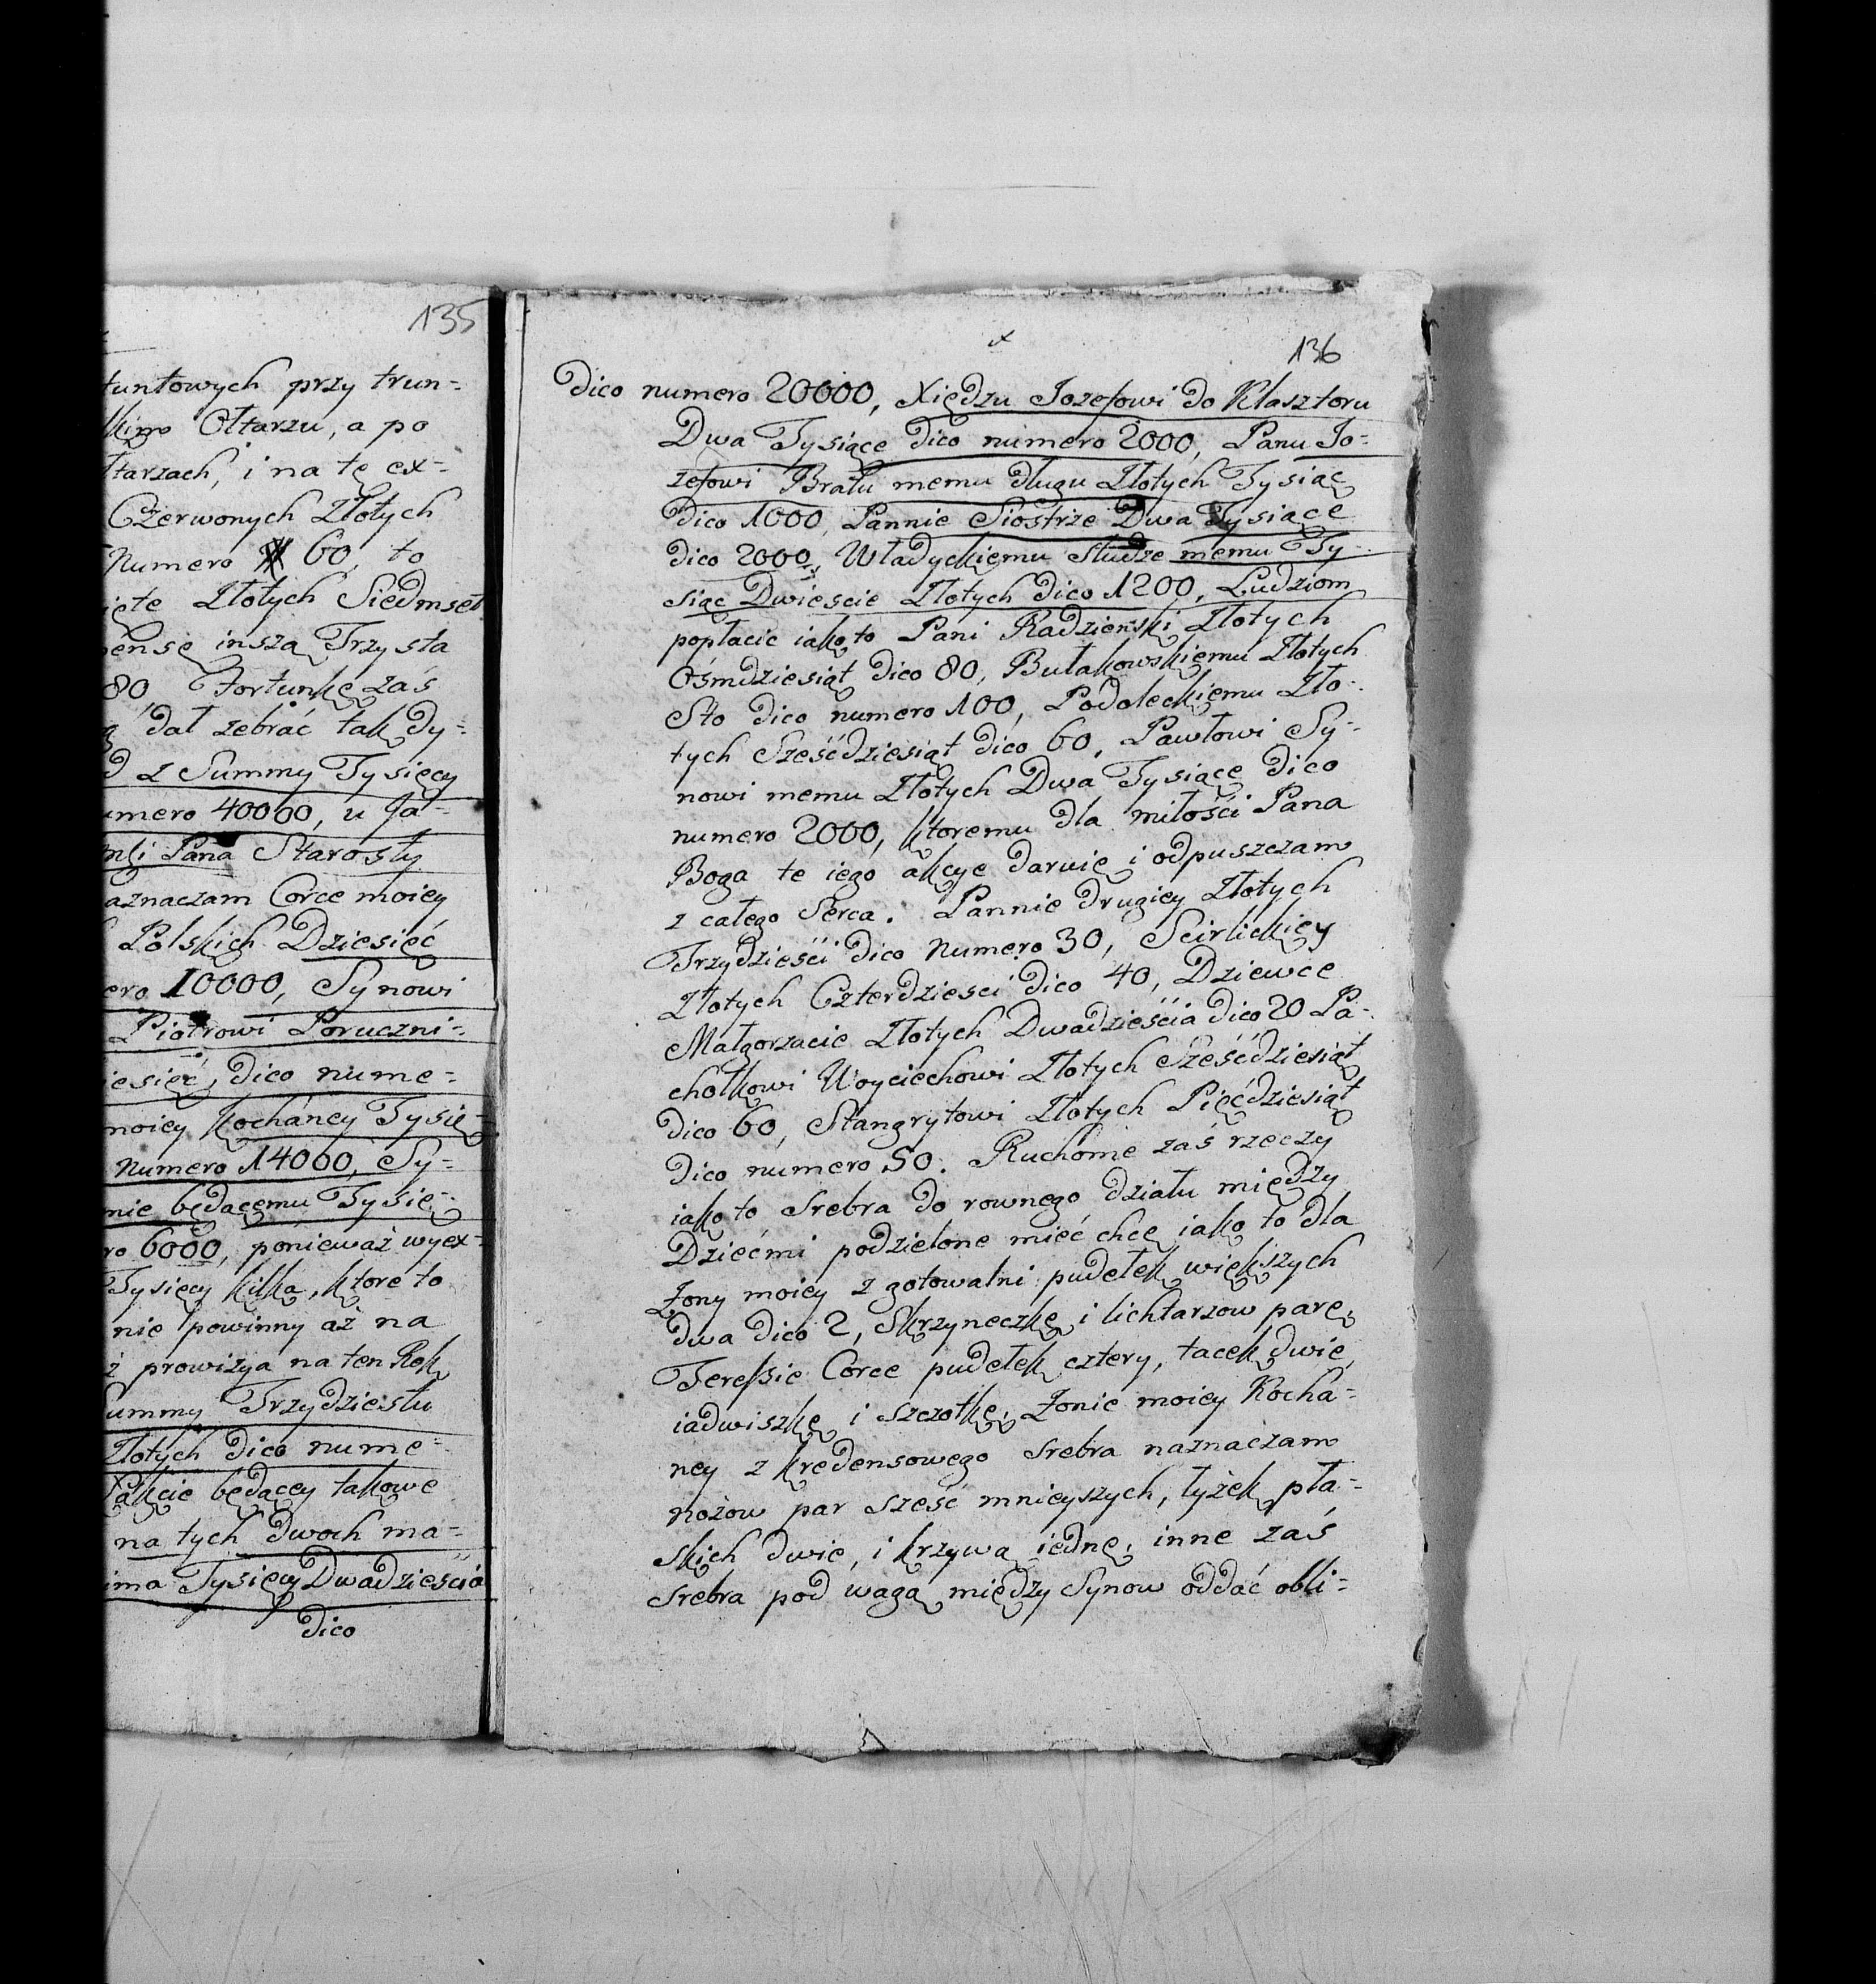 135
funtowych przy trun=
lkim Ołtarzu, a po
łtarzach, i na tę ex=
Czerwonych Złotych
Numero 60, to
ięte Złotych Siedmset
pensę inszą Trzysta
80 Fortunkę zaś
dał zebrać tak dy=
d z Summy Tysięcy
umero 40000, u Ja=
Pana Starosty
aznaczam Corce moiey
Polskich Dziesięć
ero 10000, Synowi
Piotrowi Poruczni=
iesięć, dico nume=
moiey kochaney Tysię=
Numero 14000, Sy=
nie będącemu Tysię=
ro 6000, ponieważ wyex=
Tysięcy kilka, ktore to
nie powinny aż na
ż prowizya na ten Rok
ummy Trzydziestu
Złotych dico nume=
Pakcie będącey takowe
na tych dwoch ma=
ima Tysięcy Dwadzieścia
dico
136
dico numero 20000, Xiędzu Jozefowi do Klasztoru
Dwa Tysiące dico numero 2000, Panu Jo=
zefowi Bratu memu długu Złotych Tysiąc
dico 1000, Pannie Siostrze Dwa Tysiące
dico 2000, Władyckiemu Słudze memu Ty=
siąc Dwieście Złotych dico 1200, Ludziom
popłacic iako to Pani Radzienski Złotych
Ośmdziesiąt dico 80, Bułakowskiemu Złotych
Sto dico numero 100, Podoleckiemu Zło=
tych Sześćdziesiąt dico 60, Pawłowi Sy=
nowi memu Złotych Dwa Tysiące dico
numero 2000, ktoremu dla miłości Pana
Boga te iego akcye daruię i odpuszczam
z całego Serca. Pannie drugiey Złotych
Trzydzieści dico Numero 30, Scirlickiey
Złotych Czterdziesci dico 40, Dziewce
Małgorzacie Złotych Dwadzieścia dico 20 Pa=
chołkowi Woyciechowi Złotych Sześćdziesiąt
dico 60, Stangrytowi Złotych Pięćdziesiąt
dico numero 50. Ruchome zaś rzeczy
iako to srebra do rownego działu między
Dziećmi podzielone mieć chcę iako to dla
Żony moiey z gotowalni pudełek większych
dwa dico 2, Skrzyneczkę i lichtarzow parę,
Teressie Corce pudełek cztery, tacek dwie,
iadwiszkę i szczotkę, Żonie moiey Kocha=
ney z kredensowego srebra naznaczam
nożow par sześć mnieyszych, łyżek pła=
skich dwie, i krzywą iednę, inne zaś
srebra pod wagą między Synow oddać obli=